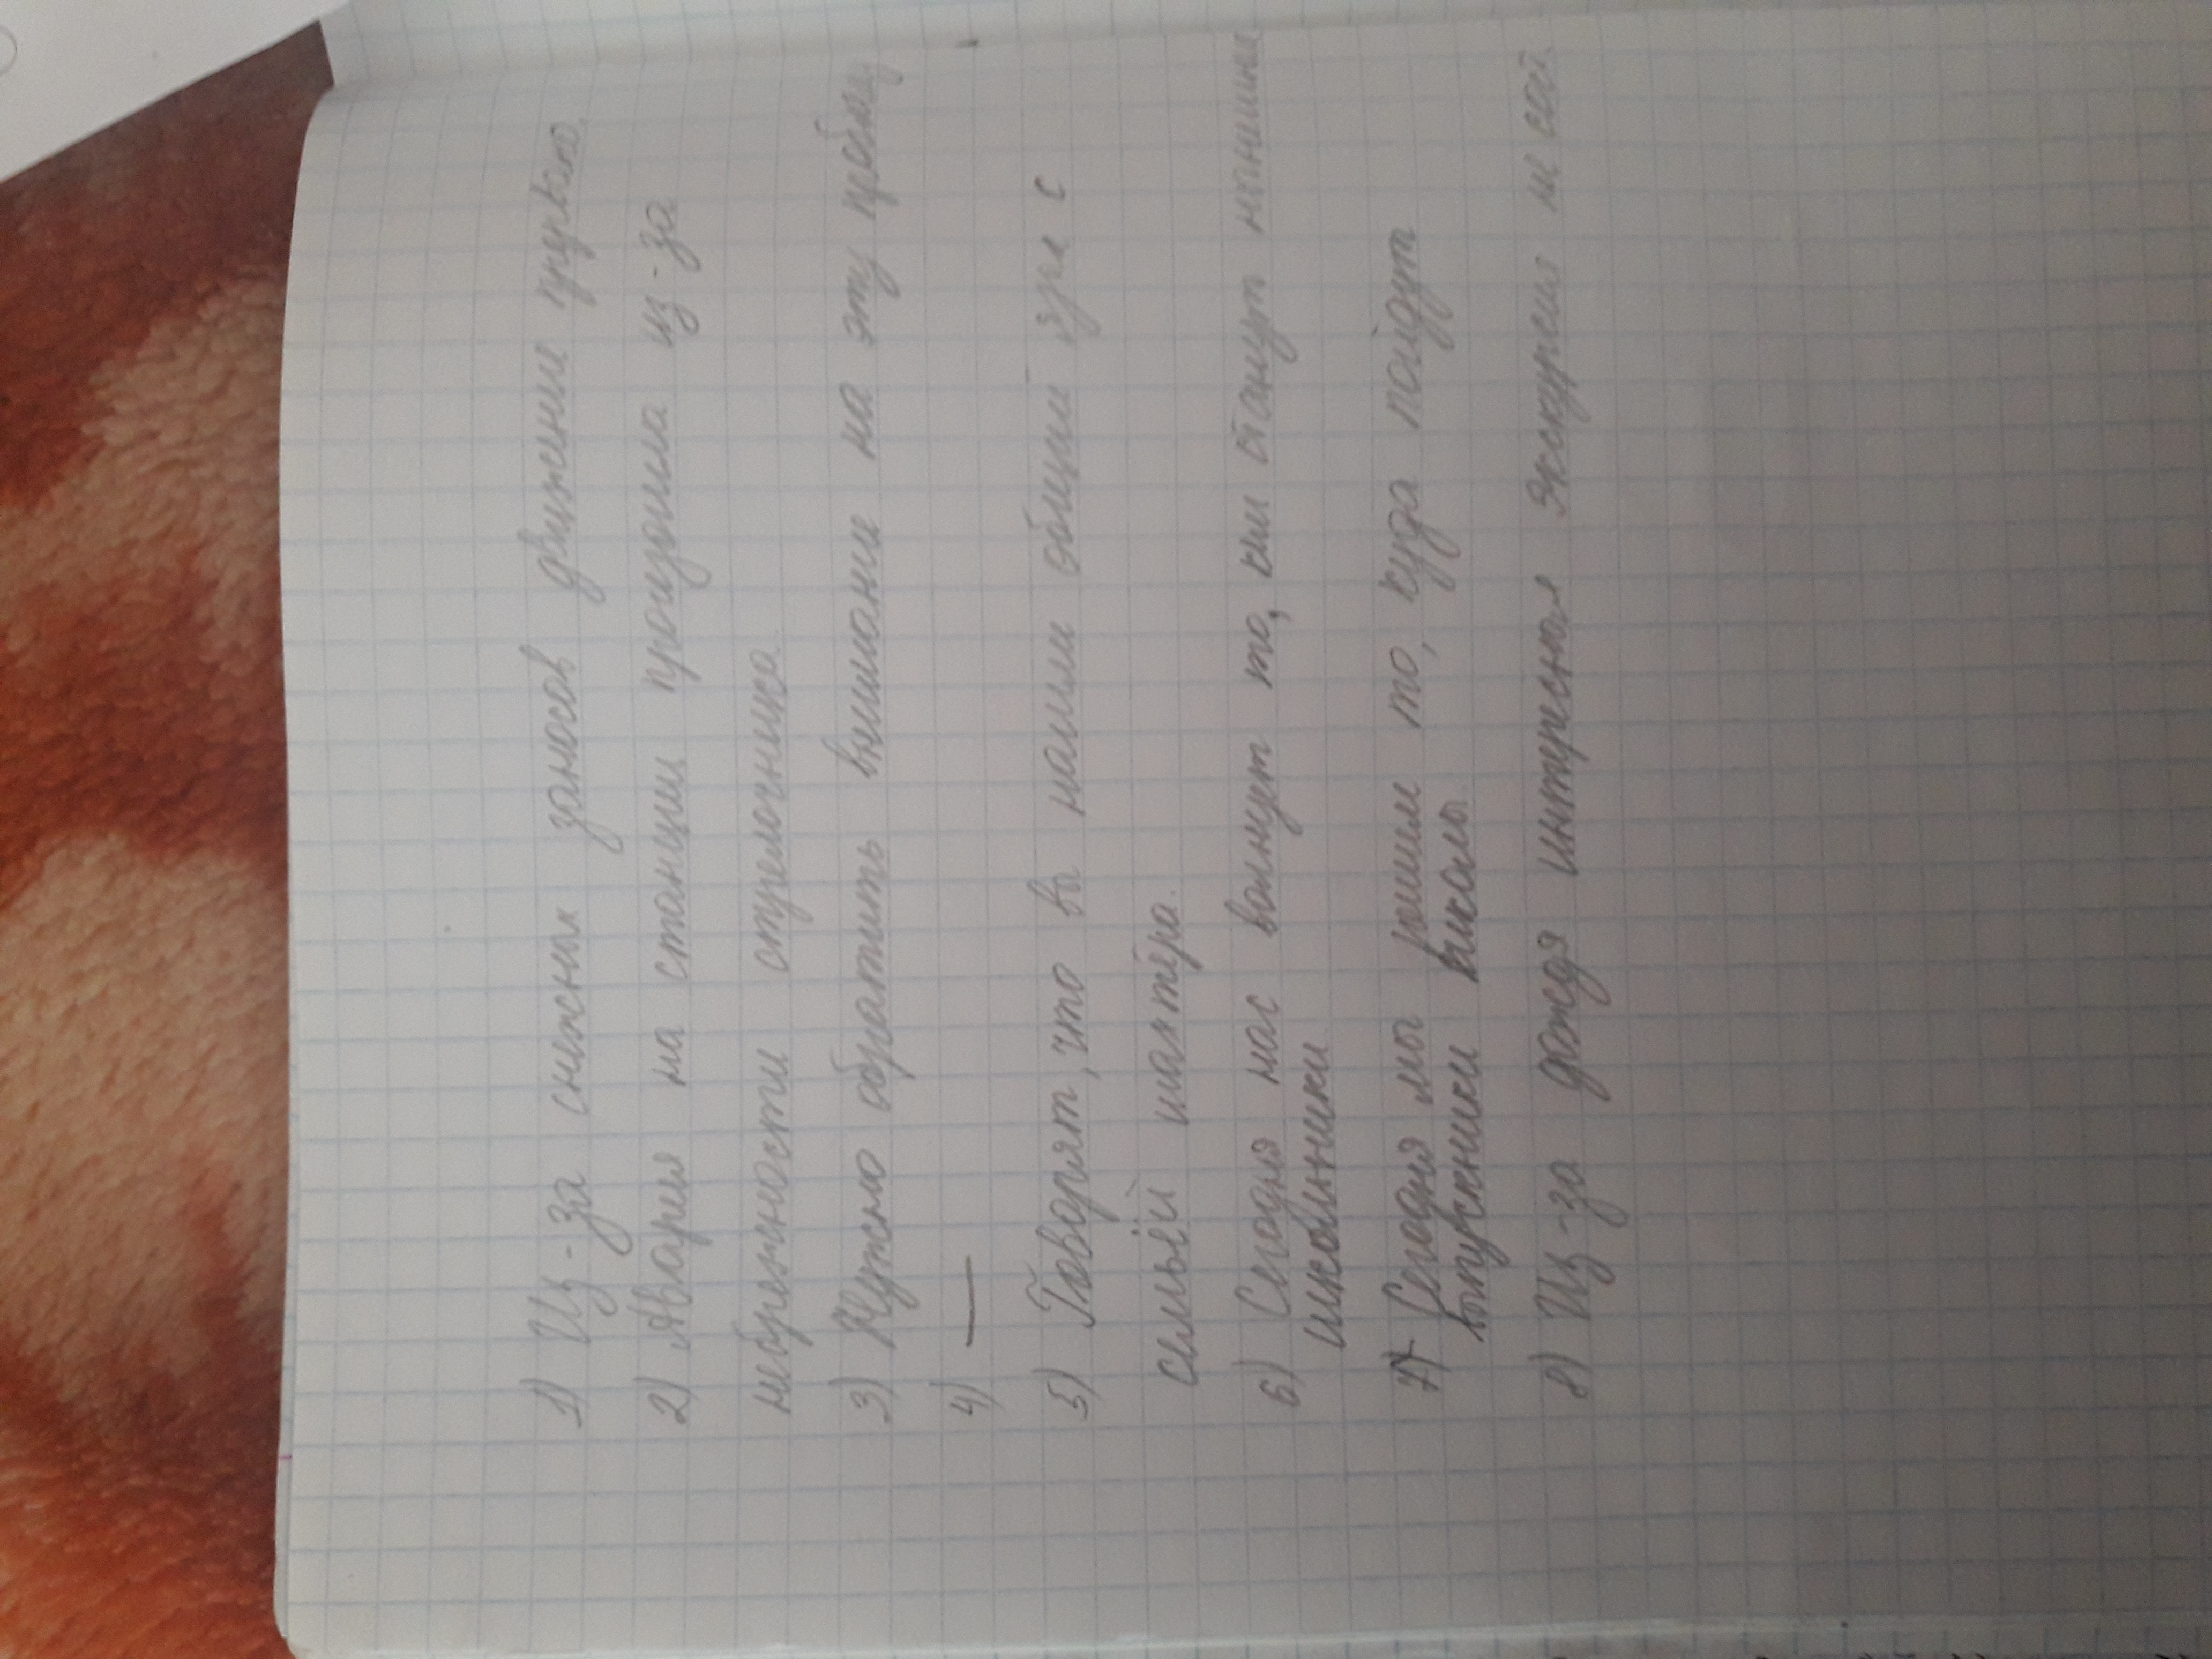 1) Из-за снежных заносов движение
2) Авария на станции произошла из-за
небрежности стрелочника.
3) Нужно обратить внимание на эту
4) —
5) Говорят, что вы нашли общий с
семьёй шахтёра.
6) Сегодня нас волнует то, кем станут нынешние
школьники
7) Сегодня мы решим то, куда пойдут
выпускники школы.
8) Из-за дождя интересная экскурсия не сос